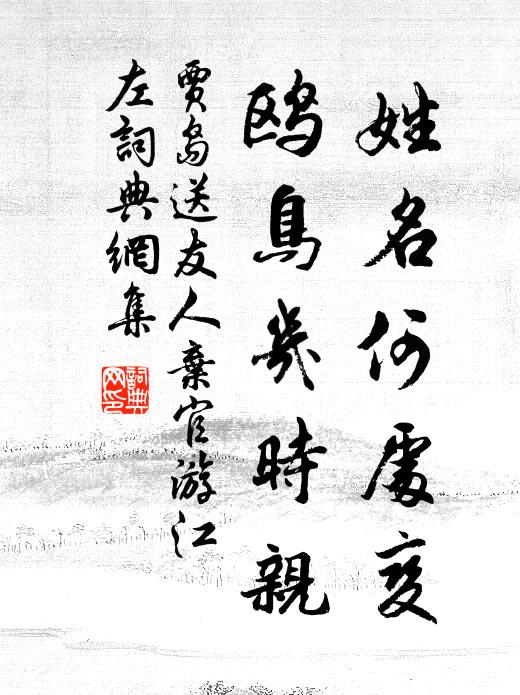 姓名何處變
鷗鳥幾時親
賈島送友人棄官游江
左詞典網集
詞典
网印